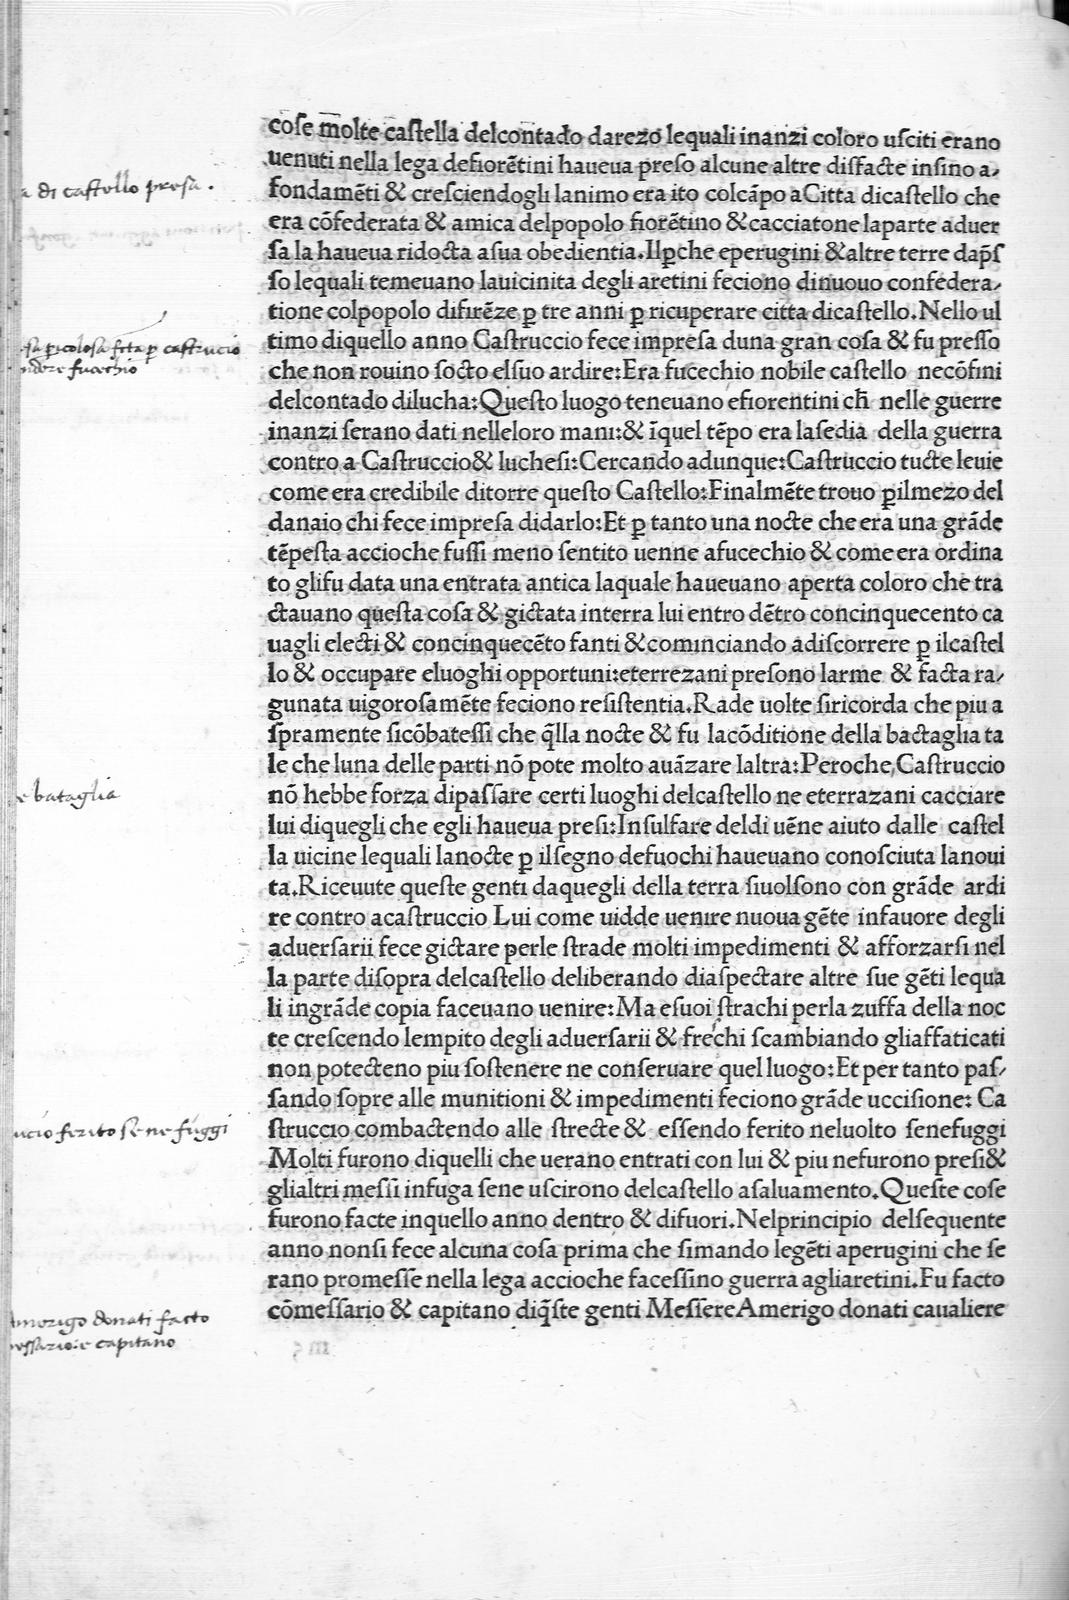 cose molte castella delcontado darezo lequali inanzi coloro usciti erano
uenuti nella lega defiorētini haueua preso alcune altre disfacte insino a⸗
fondamēti & cresciendogli lanimo era ito colcāpo aCitta dicastello che
era cōfederata & amica delpopolo fiorētino &cacciatone laparte aduer
sa la haueua ridocta asua obedientia.Ilꝑche eperugini &altre terre dap̄s
so lequali temeuano lauicinita degli aretini feciono dinuouo confedera⸗
tione colpopolo difirēze ꝑ tre anni ꝑ ricuperare citta dicastello.Nello ul
timo diquello anno Castruccio fece impresa duna gran cosa & fu presso
che non rouino socto elsuo ardire:Era fucechio nobile castello necōfini
delcontado dilucha:Questo luogo teneuano efiorentini cħ nelle guerre
inanzi serano dati nelleloro mani:& īquel tēpo era lasedia della guerra
contro a Castruccio& luchesi:Cercando adunque:Castruccio tucte leuie
come era credibile ditorre questo Castello:Finalmēte trouo ꝑilmezo del
danaio chi fece impresa didarlo:Et ꝑ tanto una nocte che era una grāde
tēpesta accioche fussi meno sentito uenne afucechio & come era ordina
to glifu data una entrata antica laquale haueuano aperta coloro che tra
ctauano questa cosa & gictata interra lui entro dētro concinquecento ca
uagli electi & concinquecēto fanti &cominciando adiscorrere ꝑ ilcastel
lo & occupare eluoghi opportuni:eterrezani presono larme & facta ra⸗
gunata uigorosamēte feciono resistentia.Rade uolte siricorda che piu a
spramente sicōbatessi che q̄lla nocte & fu lacōditione della bactaglia ta
le che luna delle parti nō pote molto auāzare laltra:Peroche Castruccio
nō hebbe forza dipassare certi luoghi delcastello ne eterrazani cacciare
lui diquegli che egli haueua presi:Insulfare deldi uēne aiuto dalle castel
la uicine lequali lanocte ꝑ ilsegno defuochi haueuano conosciuta lanoui
ta.Riceuute queste genti daquegli della terra siuolsono con grāde ardi
re contro acastruccio Lui come uidde uenire nuoua gēte infauore degli
aduersarii fece gictare perle strade molti impedimenti & afforzarsi nel
la parte disopra delcastello deliberando diaspectare altre sue gēti lequa
li ingrāde copia faceuano uenire:Ma esuoi strachi perla zuffa della noc
te crescendo lempito degli aduersarii & frechi scambiando gliaffaticati
non potecteno piu sostenere ne conseruare quel luogo:Et per tanto pas⸗
sando sopre alle munitioni & impedimenti feciono grāde uccisione: Ca
struccio combactendo alle strecte & essendo ferito neluolto senefuggi
Molti furono diquelli che uerano entrati con lui & piu nefurono presi&
glialtri messi infuga sene uscirono delcastello asaluamento.Queste cose
furono facte inquello anno dentro & difuori.Nelprincipio delsequente
anno nonsi fece alcuna cosa prima che simando legēti aperugini che se
rano promesse nella lega accioche facessino guerra agliaretini.Fu facto
cōmessario & capitano diq̄ste genti Messere Amerigo donati caualiere
a di castello presa.
ꝑicolosa fcta ꝑ castrucio
fucechio
e bataglia
ucio ferito se ne fuggi
Amerigo donati facto
essario: e capitano